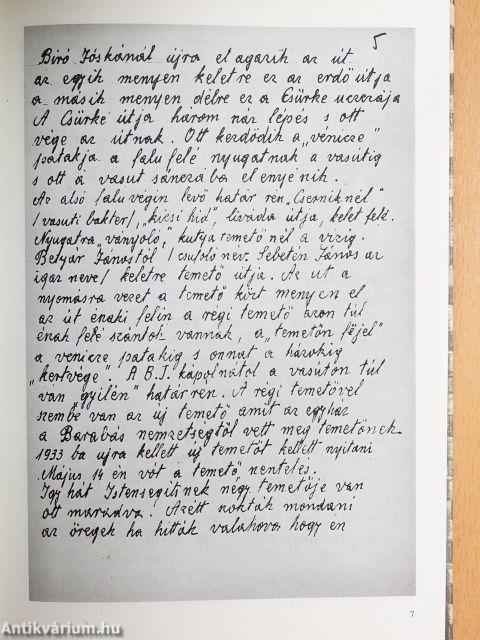 5
Biró Jóskánál újra elagazih az út
az egyih menyen keletre ez az erdő útja
a másih menyen délre ez a Csürke uczája
A Csürke útja három nár lépés s ott
vége az útnak. Ott kezdödih a „vénicze"
patakja a falu felé nyugatnak a vasútig
s ott a vasut sánczába elenyénih.
Az alsó falu végin levő határ rén „Cserniknél"
/vasuti bakter/, „kicsi hid", liváda útja, kelet felé.
Nyugatra „ványoló", kutya temető nél a vizig.
Betyár Jánostól /csufoló nev. Sebetén János az
igaz neve/ keletre temető útja. Az út a
nyomásra vezet a temető közt menyen el
az út énaki felin a régi temető azon túl
énak felé szántok vannak, a „temetőn féjel"
a venicze patakig s onnat a házokig
„kertvége". A B.J. kápolnától a vasúton túl
ván „gyilén" határ rén. A régi temetővel
szembe van az új temető amit az egyház
a Barabás nemzetségtől vett meg temetőnek.
1933 ba ujra kellett új temetőt kellett nyitani
Május 14 én vót a temető nentelés.
Igy hát Istensegitnek négy temetője van
ott maradva! Azétt nokták mondani
az öregek ha hitták valahova hogy én
7
Antikvárium.hu